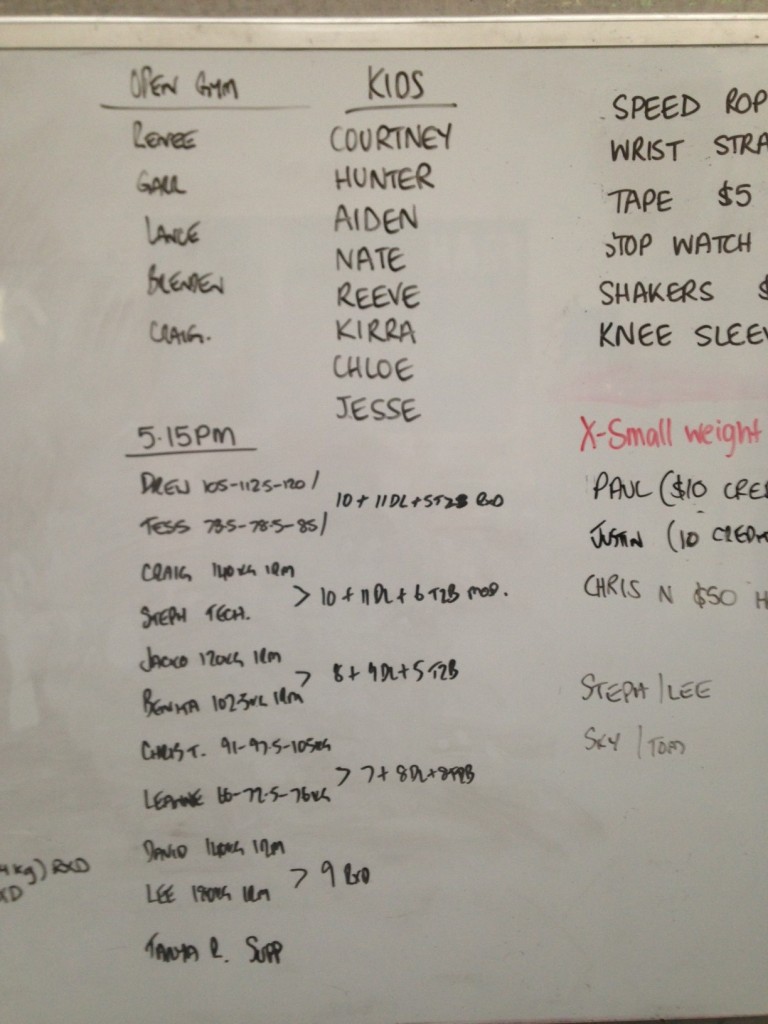 OPEN GYM
RENEE
LANCE
BRENDEN
CRAIG.
KIDS
COURTNEY
HUNTER
AIDEN
NATE
REEVE
KIRRA
CHLOE
JESSE
SPEED ROP
WRIST STRA
TAPE $5
STOP WATCH
SHAKERS $
KNEE SLEEV
X-Small weight
PAUL ($10 CRED
JUSTIN (10 CREDI
CHRIS N $50 H
STEPH/LEE
SKY/TOM
5.15PM
DREW 105-112.5-120/
TESS 73.5-78.5-85/
10 + 11DL + 5T2B RXD
CRAIG 140KG 1RM
STEPH TECH.
> 10 + 11DL + 6 T2B MOD.
JACKO 120KG 1RM
102.5KG 1RM
> 8 + 9DL + 5 T2B
CHRIS T. 91-97.5-105KG
LEANNE 72.5-76KG
> 7 + 8DL + 8T2B
DAVID 140KG 1RM
LEE 1RM
> 9 RXD
TANYA R. SUPP
4kg) RXD
XD